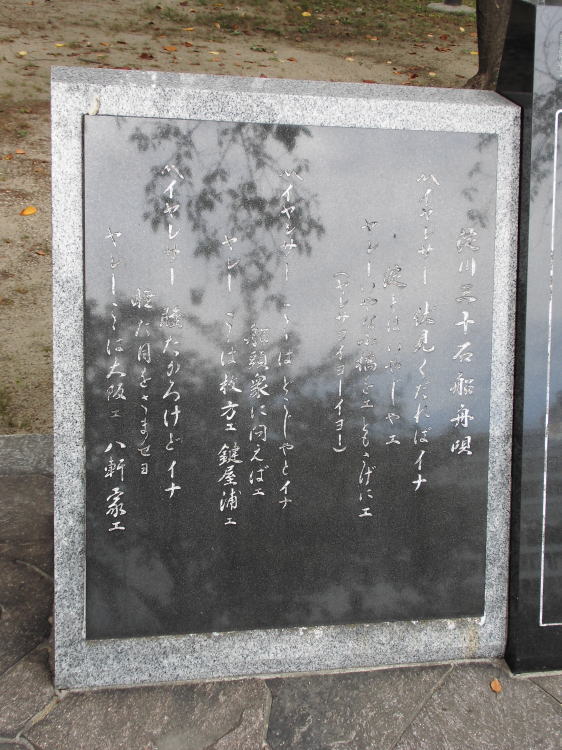 淀川三十石船舟唄
ハイヤレサー 伏見くだればイナ
淀とはいやじゃエ
ヤレーいやな小橋をエともさげにエ
(ヤレサヨイヨーイヨー)
ハイヤレサー こゝはどこじゃとイナ
船頭衆に問えばエ
ヤレー こゝは枚方エ 鍵屋浦エ
ハイヤレサー 眠たかろけどイナ
眠た目をさませヨ
ヤレーこゝは大阪エ 八軒家エ